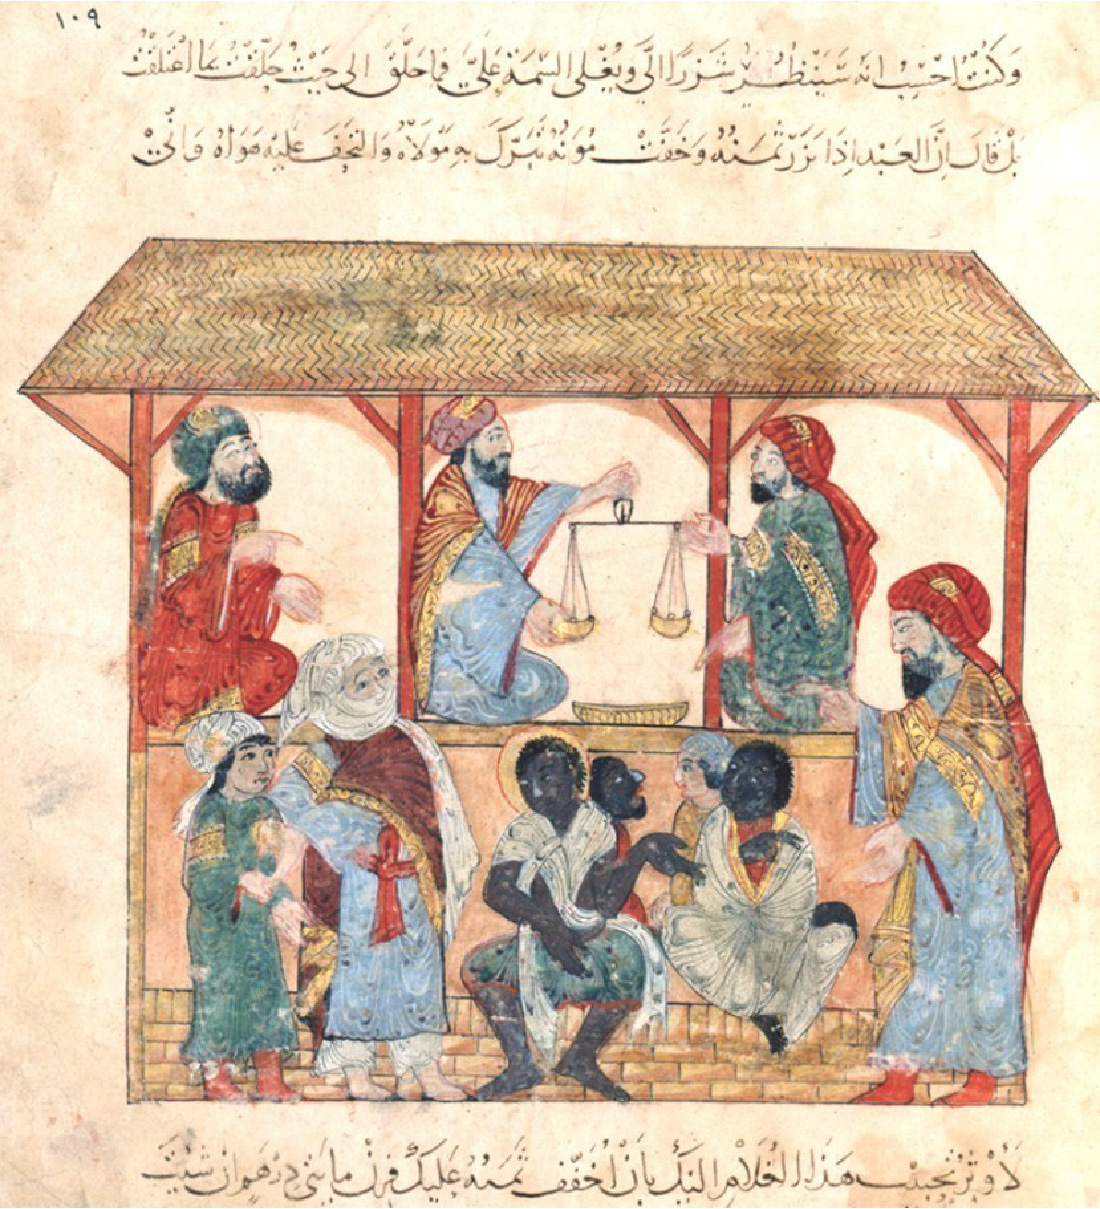 ١٠٩
وَكُنْتُ احْسِبُ انه سَيَنْظُر شَزَرًا الَيَّ وَيُغْلى السِّمَةَ عَلَيَّ فما حَلَّقَ الى حَيْثُ حَلَّقْتُ بما اعْتَلَقْتُ
بَلْ قال انَّ العَبْد اِذَا نَزَرَ ثمنهُ وَخَفَّتْ مُوَنُهُ تَبَرَّكَ بِهِ مَوْلَاهُ وَالتَحَفَ عَلَيْهِ هَوَاهُ وَانِّيْ
لَأُوثرُ تحبيبَ هَذَا الغُلَامِ الَيْكَ بِأَنْ أُخَفِّفَ ثَمَنَهُ عَلَيْكَ فَزِنْ مِائتي دِرْهَمٍ ان شِئْتَ